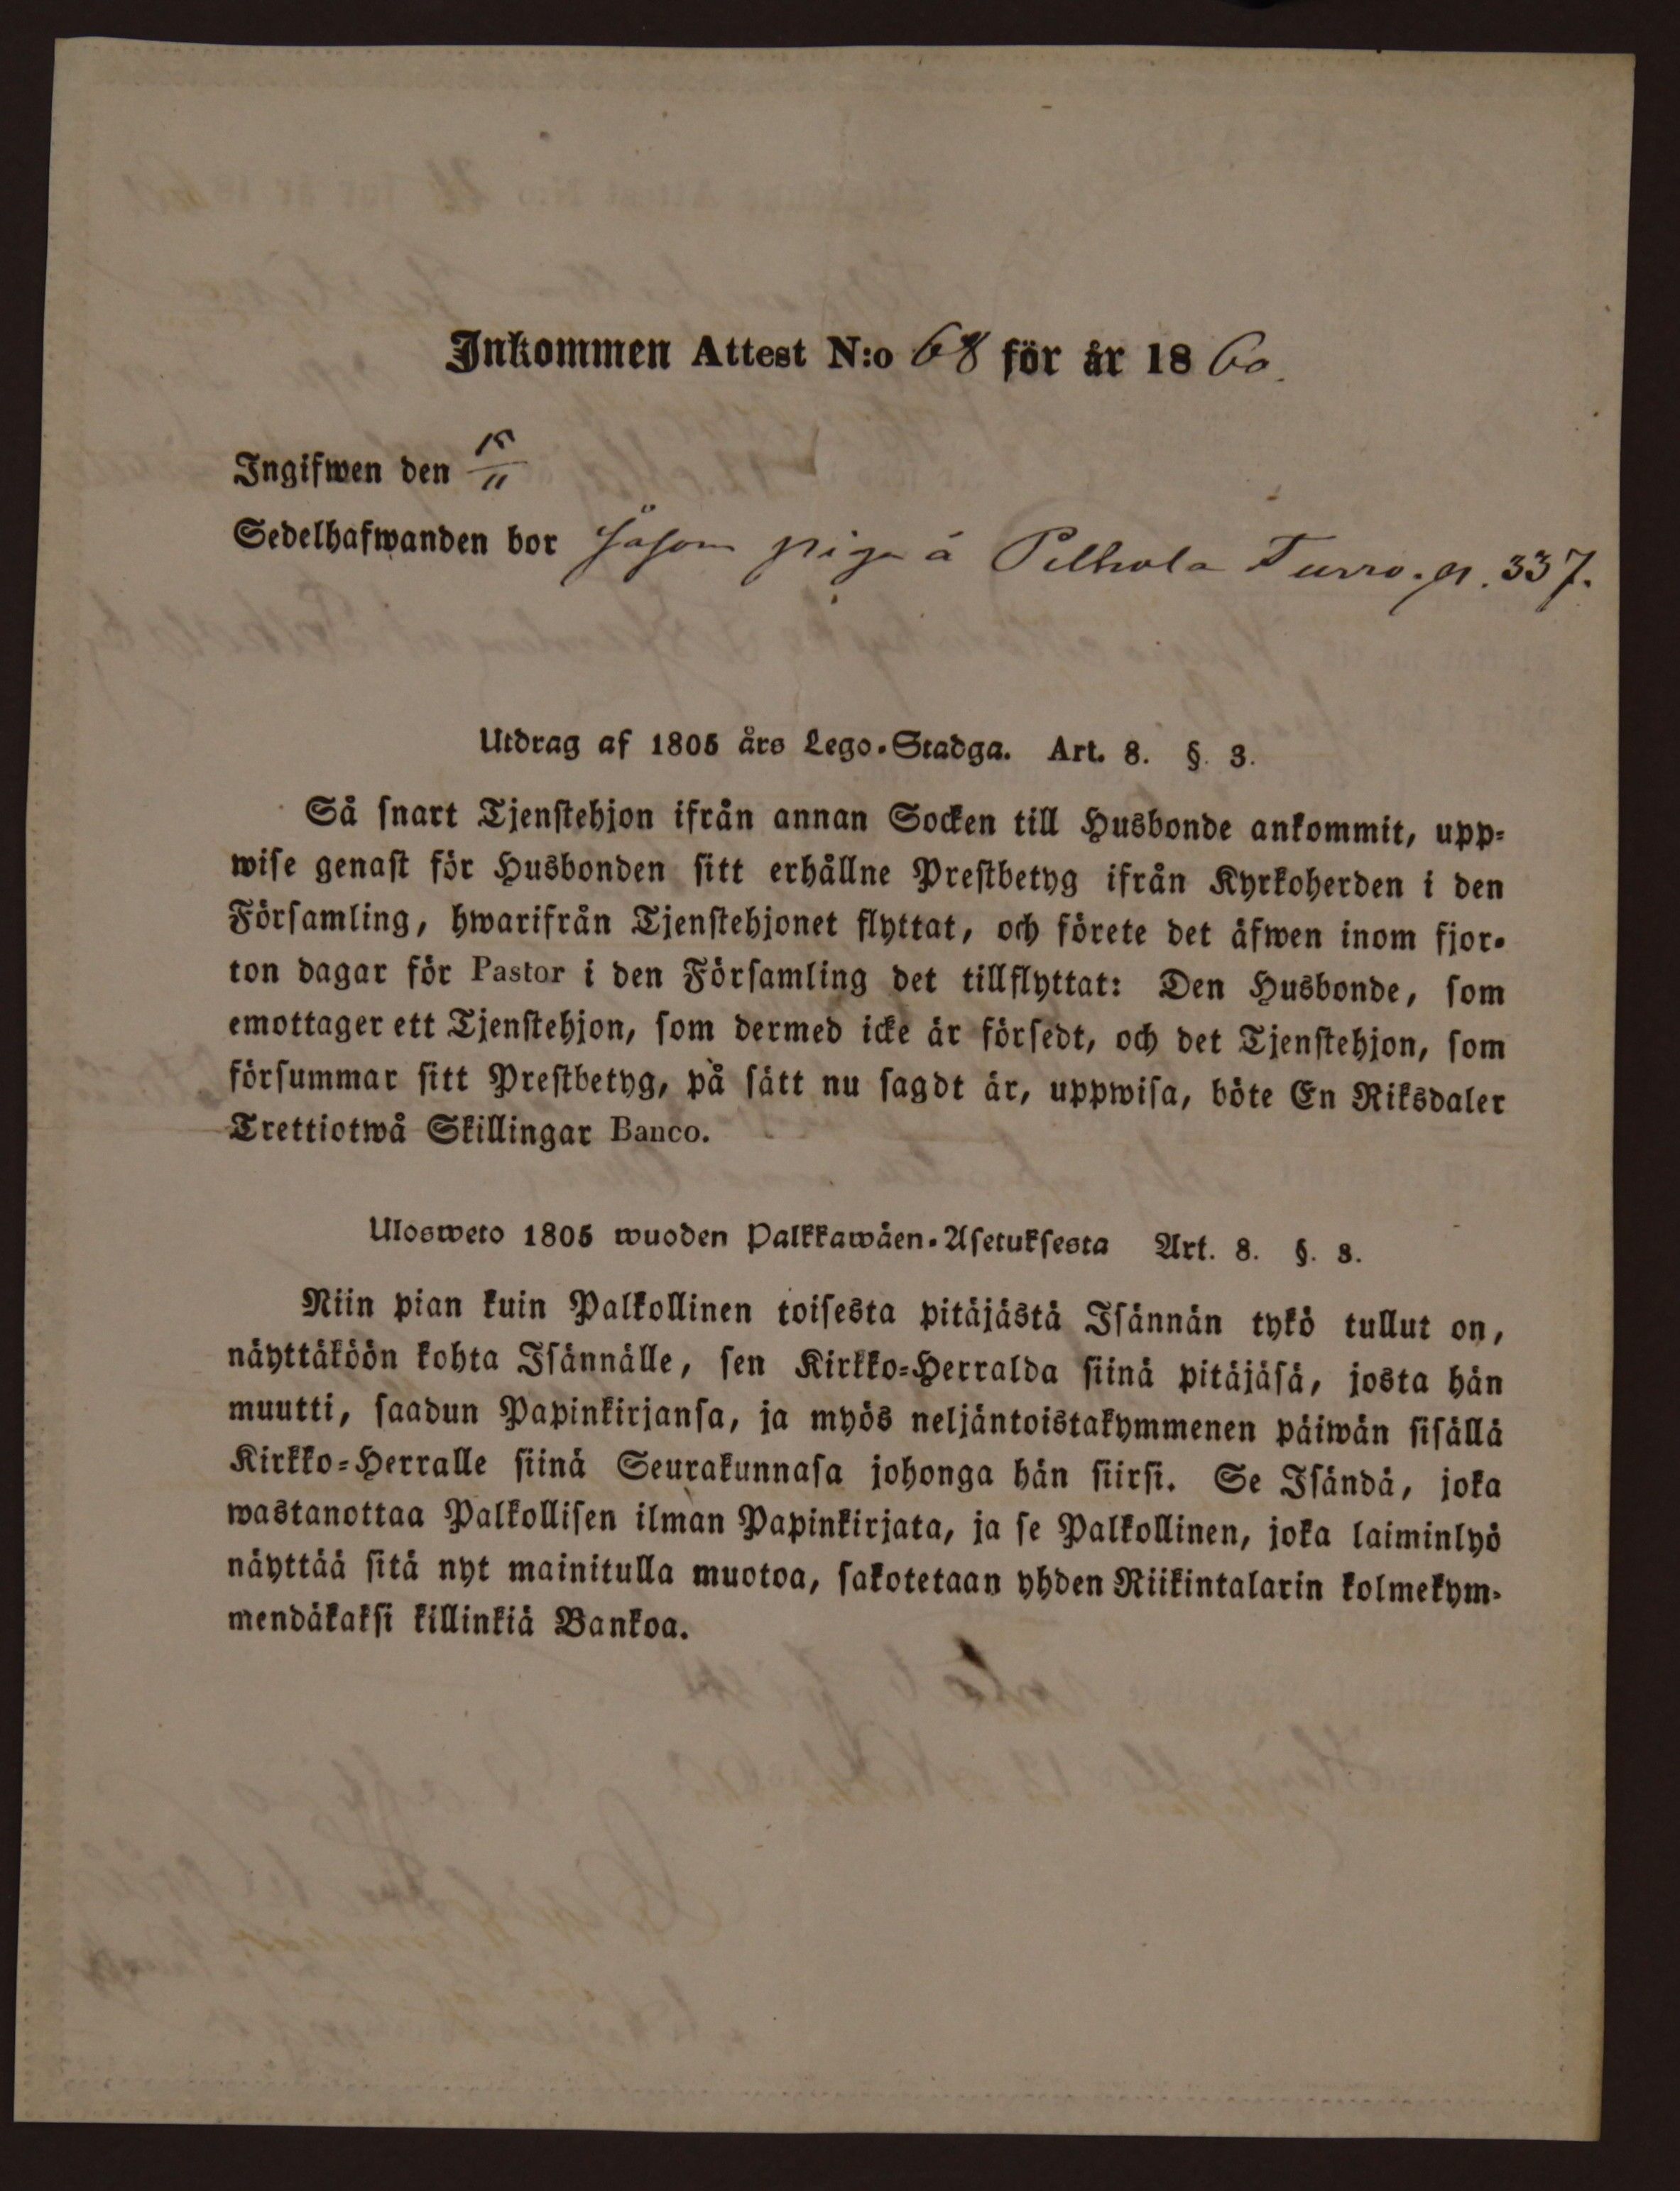 Inkommen Attest N:o 68 för år 1860.
Ingifwen den 15/11
Sedelhafwanden bor såsom piga å Pelhola Turro. p. 337.
Utdrag af 1805 års Lego-Stadga. Art. 8. §. 3.
Så snart Tjenstehjon ifrån annan Socken till Husbonde ankommit, upp-
wise genast för Husbonden sitt erhållne Prestbetyg ifrån Kyrkoherden i den
Församling, hwarifrån Tjenstehjonet flyttat, och förete det äfwen inom fjor-
ton dagar för Pastor i den Församling det tillflyttat: Den Husbonde, som
emottager ett Tjenstehjon, som dermed icke är försedt, och det Tjenstehjon, som
försummar sitt Prestbetyg, på sätt nu sagdt är, uppwisa, böte En Riksdaler
Trettiotwå Skillingar Banco.
Ulosweto 1805 wuoden Palkkawäen-Asetuksesta Art. 8. §. 3.
Niin pian kuin Palkollinen toisesta pitäjästä Isännän tykö tullut on,
näyttäköön kohta Isännälle, sen Kirkko-Herralda siinä pitäjäsä, josta hän
muutti, saadun Papinkirjansa, ja myös neljäntoistakymmenen päiwän sisällä
Kirkko-Herralle siinä Seurakunnasa johonga hän siirsi. Se Isändä, joka
wastanottaa Palkollisen ilman Papinkirjata, ja se Palkollinen, joka laiminlyö
näyttää sitä nyt mainitulla muotoa, sakotetaan yhden Riikintalarin kolmekym-
mendäkaksi killinkiä Bankoa.